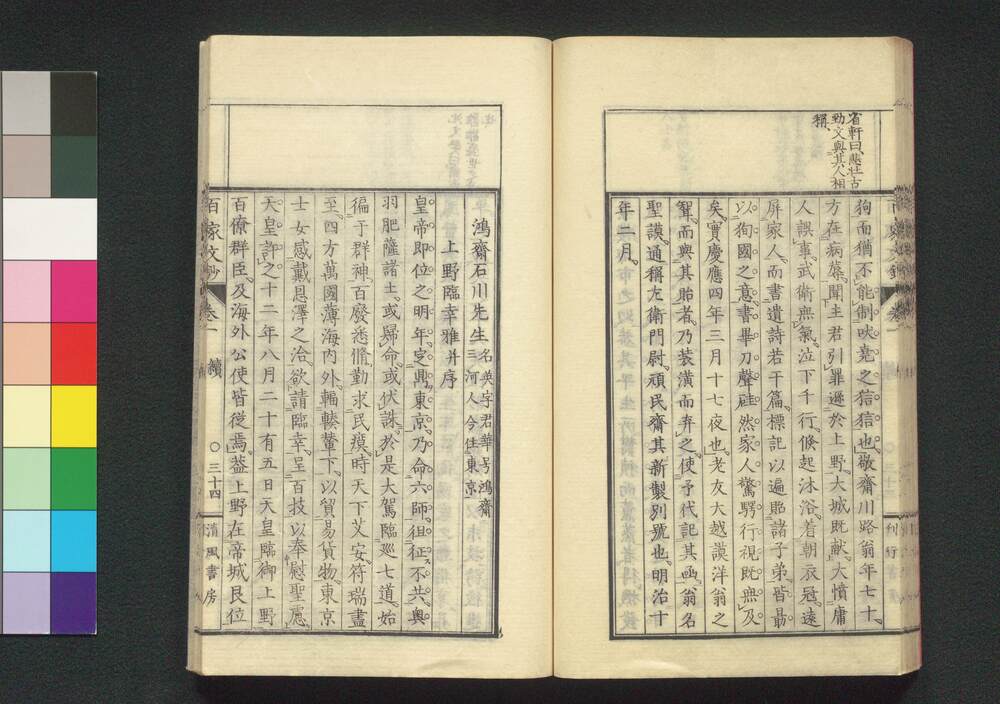 省軒曰悲壮古
勁文與其人相
稱
狗而猶不能制吠堯之狺狺也敬齋川路翁年七十
方在病蓐聞主君引罪遜於上野大城既献大憤庸
人誤事武衛無氣泣下千行倏起沐浴着朝衣冠遠
屏家人而書遺詩若干篇標記以遍貽諸子弟皆勗
以徇國之意書畢刀聲砉然家人驚愕行視既無及
矣實慶應四年三月十七夜也老友大越謨洋翁之
聟而與其貽者乃装潢而弆之使予代記其函翁名
聖謨通稱左衛門尉頑民齋其新製別號也明治十
年二月
鴻齋石川先生 名英字君華号鴻齋
三河人今住東京
上野臨幸雅并序
皇帝即位之明年定鼎東京乃命六師徂征不共奥
羽肥薩諸土或歸命或伏誅於是大駕臨巡七道始
徧于群神百廢悉脩勤求民瘼時天下艾安符瑞盡
至四方萬國薄海内外輻輳輦下以貿易貨物東京
士女感戴恩澤之洽欲請臨幸呈百技以奉慰聖慮
天皇許之十二年八月二十有五日天皇臨御上野
百僚群臣及海外公使皆從焉蓋上野在帝城艮位
百家文鈔 卷一 續 〇三十四 清風書房